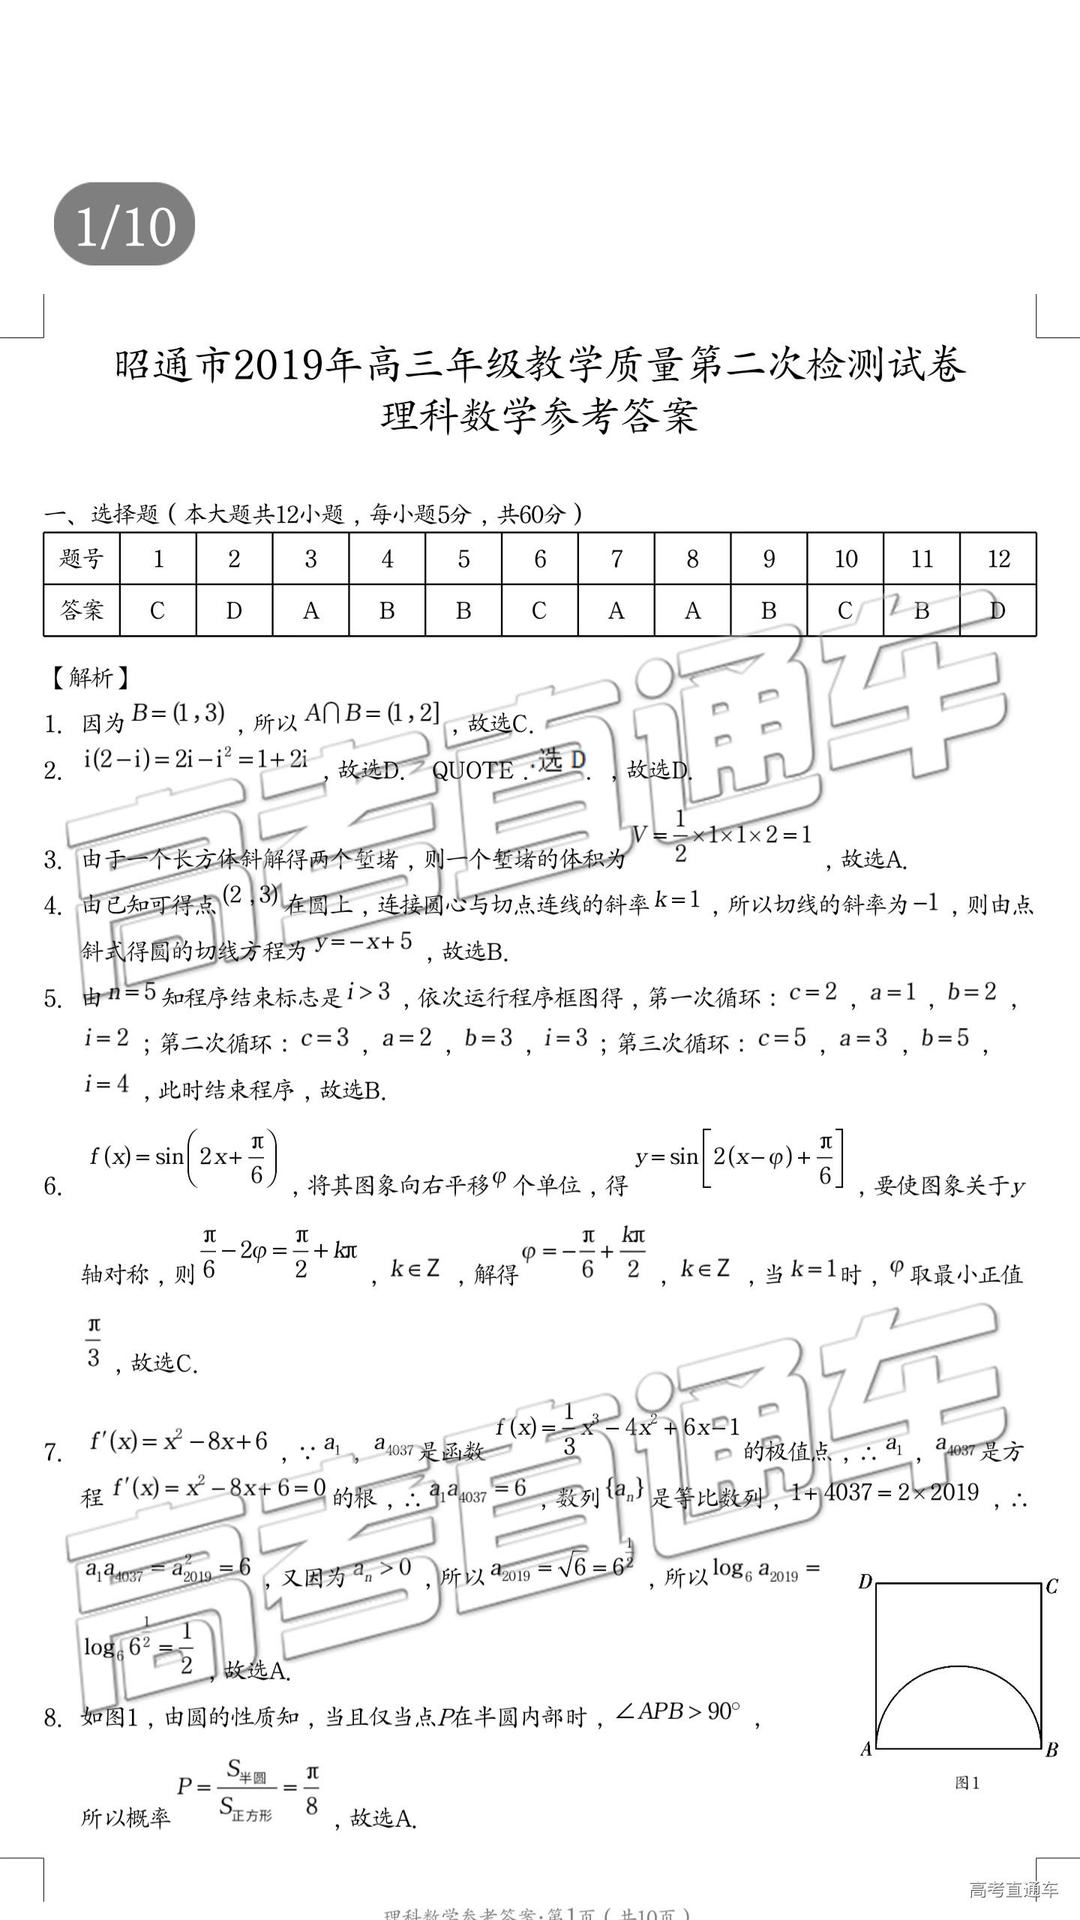 1/10
昭通市2019年高三年级教学质量第二次检测试卷
理科数学参考答案
一、选择题（本大题共12小题，每小题5分，共60分）
题号 1 2 3 4 5 6 7 8 9 10 11 12
答案 C D A B B C A A B C B D
【解析】
1. 因为B=(1,3)，所以A∩B=(1,2]，故选C.
2. i(2−i)=2i−i²=1+2i，故选D. QUOTE .·选 D .，故选D.
3. 由于一个长方体斜解得两个堑堵，则一个堑堵的体积为V=1/2×1×1×2=1，故选A.
4. 由已知可得点(2,3)在圆上，连接圆心与切点连线的斜率k=1，所以切线的斜率为−1，则由点
斜式得圆的切线方程为y=−x+5，故选B.
5. 由n=5知程序结束标志是i>3，依次运行程序框图得，第一次循环：c=2，a=1，b=2，
i=2；第二次循环：c=3，a=2，b=3，i=3；第三次循环：c=5，a=3，b=5，
i=4，此时结束程序，故选B.
6. f(x)=sin(2x+π/6)，将其图象向右平移φ个单位，得y=sin[2(x−φ)+π/6]，要使图象关于y
轴对称，则π/6−2φ=π/2+kπ，k∈Z，解得φ=−π/6+kπ/2，k∈Z，当k=1时，φ取最小正值
π/3，故选C.
7. f′(x)=x²−8x+6，∵a₁，a₄₀₃₇是函数f(x)=1/3x³−4x²+6x−1的极值点，∴a₁，a₄₀₃₇是方
程f′(x)=x²−8x+6=0的根，∴a₁a₄₀₃₇=6，数列{aₙ}是等比数列，1+4037=2×2019，∴
a₁a₄₀₃₇=a²₂₀₁₉=6，又因为aₙ>0，所以a₂₀₁₉=√6=6^(1/2)，所以log₆a₂₀₁₉=
log₆6^(1/2)=1/2，故选A.
8. 如图1，由圆的性质知，当且仅当点P在半圆内部时，∠APB>90°，
所以概率P=S半圆/S正方形=π/8，故选A.
D C
A B
图1
高考直通车
高考直通车
高考直通车
理科数学参考答案·第1页（共10页）